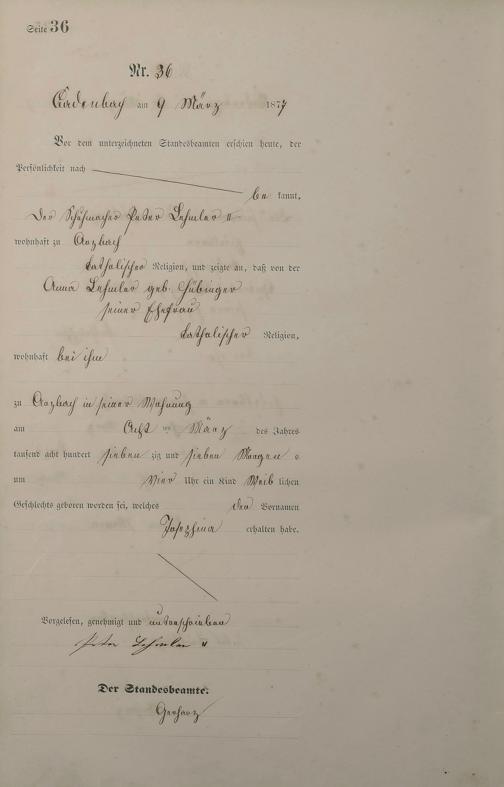 Seite 36
Nr. 36
Cadenbach am 9 März 1877
Vor dem unterzeichneten Standesbeamten erschien heute, der
Persönlichkeit nach
be kannt,
Der Schuhmacher Peter Lehmler II
wohnhaft zu Arzbach
katholischer Religion, und zeigte an, daß von der
Anna Lehmler geb. Hübinger
seiner Ehefrau
katholischer Religion,
wohnhaft bei ihm
zu Arzbach in seiner Wohnung
am Acht ten März des Jahres
tausend acht hundert sieben zig und sieben Morgens
um vier Uhr ein Kind Weib lichen
Geschlechts geboren worden sei, welches den Vornamen
Josephina erhalten habe.
Vorgelesen, genehmigt und unterschrieben
Peter Lehmler II
Der Standesbeamte.
Gerharz